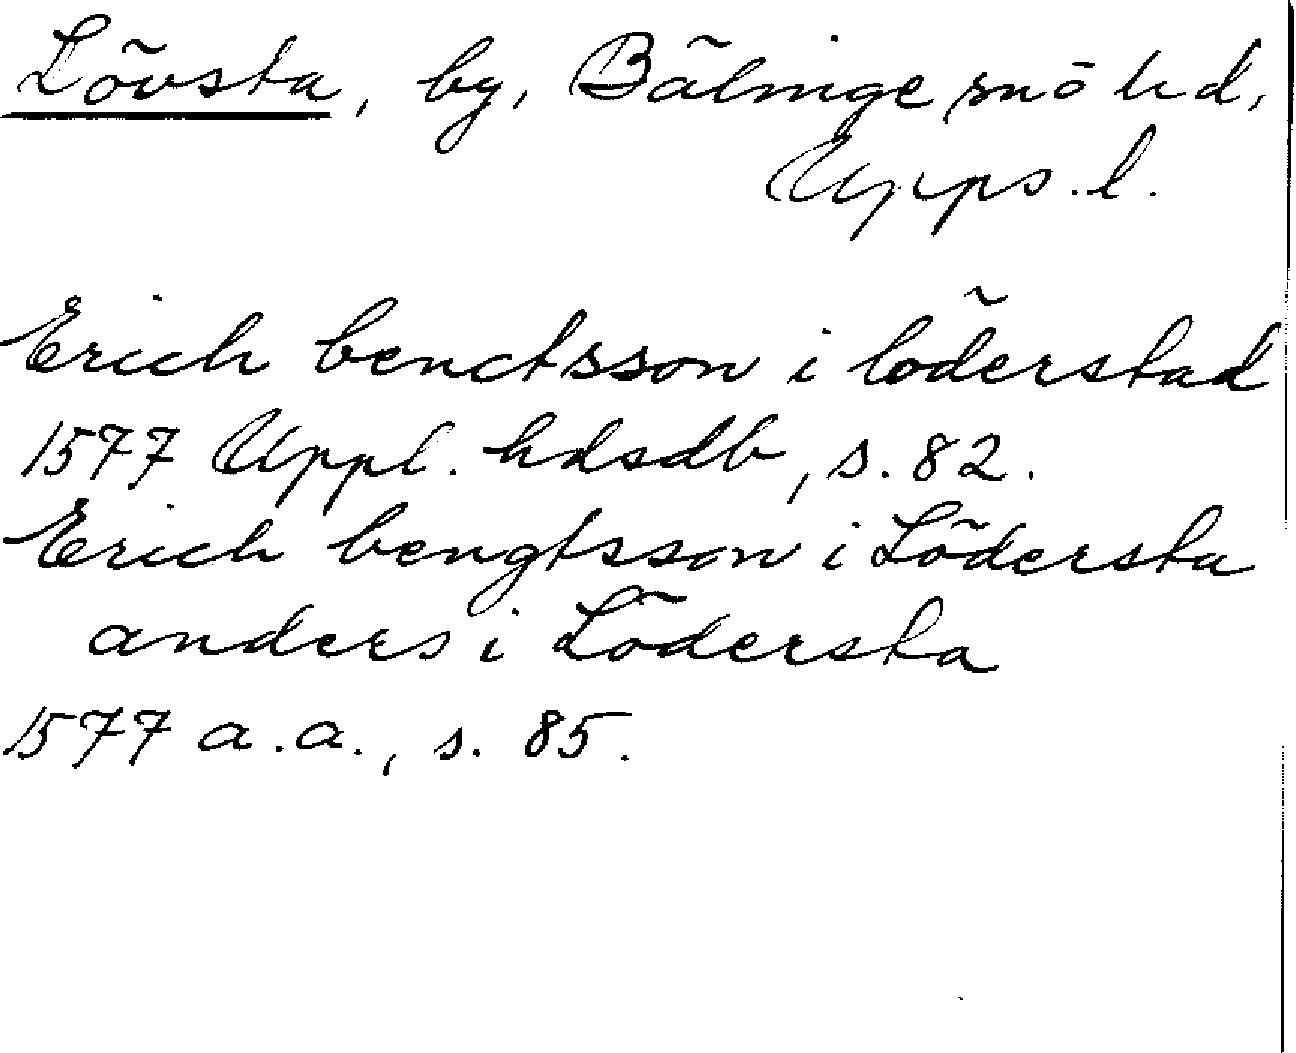 Lövsta, by, Bälinge sn o hd,
Upps. l.
Erich benctsson i löderstad
1577 Uppl. hdsdb, s. 82.
Erich bengtsson i Lödersta
anders i Lödersta
1577 a.a., s. 85.